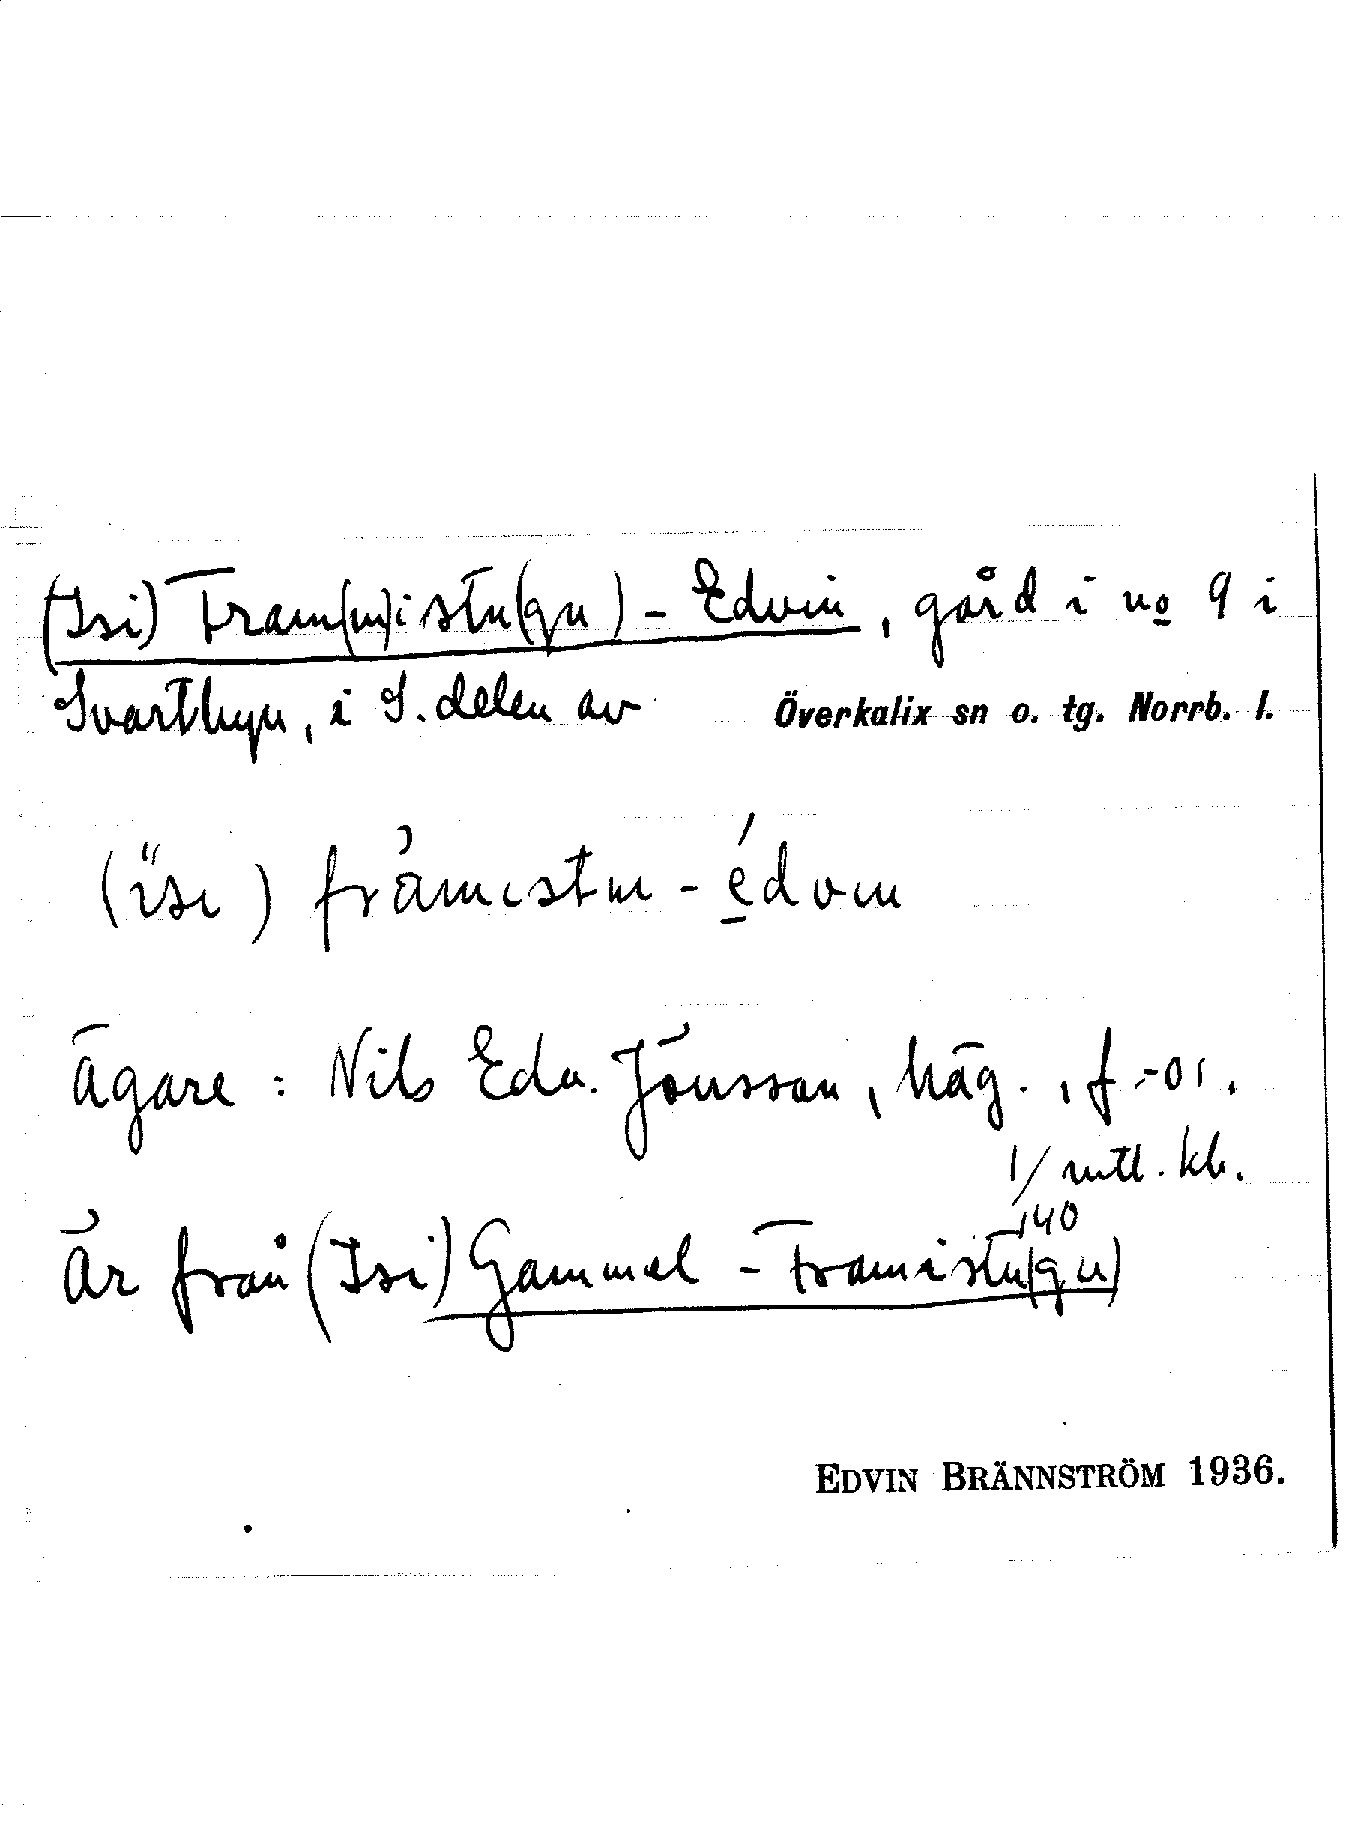 (Isi) Fram(m)istu(gu) - Edvin, gård i no 9 i
Svartbyn, i S. delen av Överkalix sn o. tg. Norrb. l.
(ïsi) från̄istu - édvin
Ägare : Nils Edv. Jönsson, häg., f. -01.
1/140 mtl. kb.
Är från (Isi) Gammel - Framistu(gu)
EDVIN BRÄNNSTRÖM 1936.